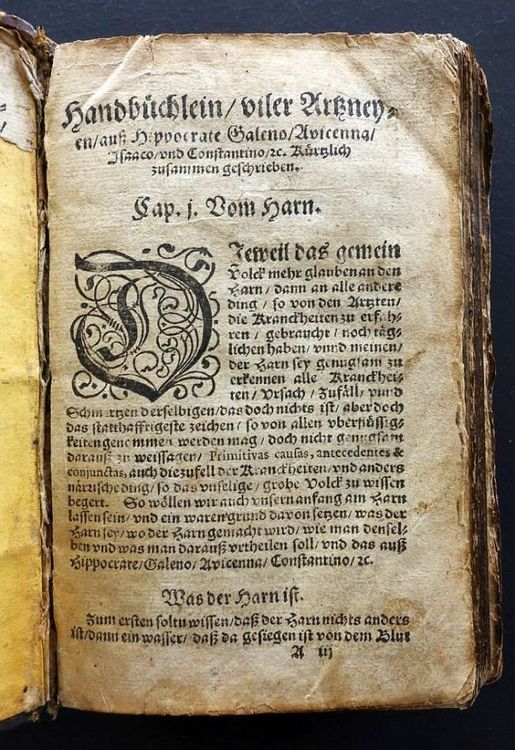 Handbüchlein/ viler Artzney-
en/ auß Hippocrate Galeno/ Avicenna/
Isaaco/ vnd Constantino/ ꝛc. Kürtzlich
zusammen geschrieben.
Cap. j. Vom Harn.
DJeweil das gemein
Volck mehr glauben an den
Harn/ dann an alle andere
ding/ so von den Artzten/
die Kranckheiten zu erfah-
ren/ gebraucht/ noch täg-
lichen haben/ vnnd meinen/
der Harn sey genugsam zu
erkennen alle Kranckhei-
ten/ Vrsach/ Zufäll/ vnnd
Schmertzen derselbigen/ das doch nichts ist/ aber doch
das statthafftigeste zeichen/ so von allen vberflüssig-
keiten genommen werden mag/ doch nicht genugsam
darauß zu weissagen/ Primitivas causas, antecedentes &
conjunctas, auch die zufell der Kranckheiten/ vnd anders
närrische ding/ so das vnselige/ grobe Volck zu wissen
begert. So wöllen wir auch vnsern anfang am Harn
lassen sein/ vnd ein waren grund davon setzen/ was der
Harn sey/ wo der Harn gemacht wird/ wie man densel-
ben vnd was man darauß vrtheilen soll/ vnd das auß
Hippocrate/ Galeno/ Avicenna/ Constantino/ ꝛc.
Was der Harn ist.
Zum ersten soltu wissen/ daß der Harn nichts anders
ist/ dann ein wasser/ daß da gesiegen ist von dem Blut
A iij